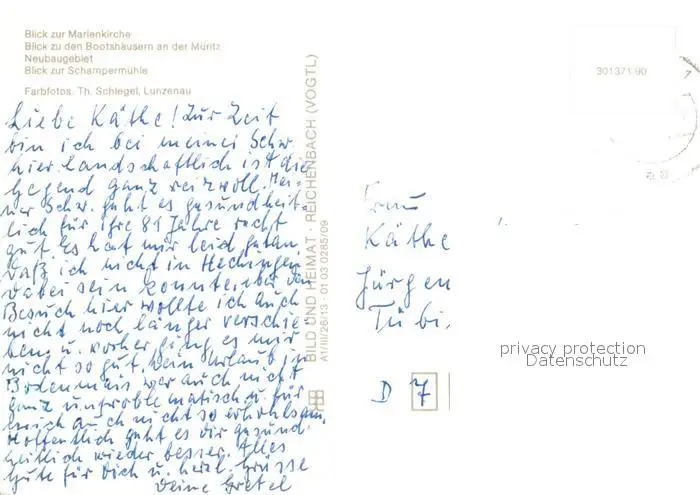 Blick zur Marienkirche
Blick zu den Bootshäusern an der Müritz
Neubaugebiet
Blick zur Schampermühle
Farbfotos. Th. Schlegel, Lunzenau
Liebe Käthe! Zur Zeit
bin ich bei meiner Schw.
hier. landschaftlich ist die
Gegend ganz reizvoll. Mei-
ner Schw. geht es gesundheit-
lich für ihre 81 Jahre recht
gut. Es hat mir leid getan,
daß ich nicht in Hechingen
dabei sein konnte, aber den
Besuch hier wollte ich auch
nicht noch länger verschie-
ben u. vorher ging es mir
nicht so gut. Mein Urlaub in
Bodenmais war auch nicht
ganz unproblematisch u. für
mich auch nicht so erholsam.
Hoffentlich geht es dir gesund-
heitlich wieder besser. Alles
Gute für Dich u. herzl. Grüsse
Deine Gretel
BILD UND HEIMAT · REICHENBACH (VOGTL)
A1/III/26/13 · 01 03 0285/09
301371/90
Frau
Käthe
Jürgen
Tübi
D 7
privacy protection
Datenschutz